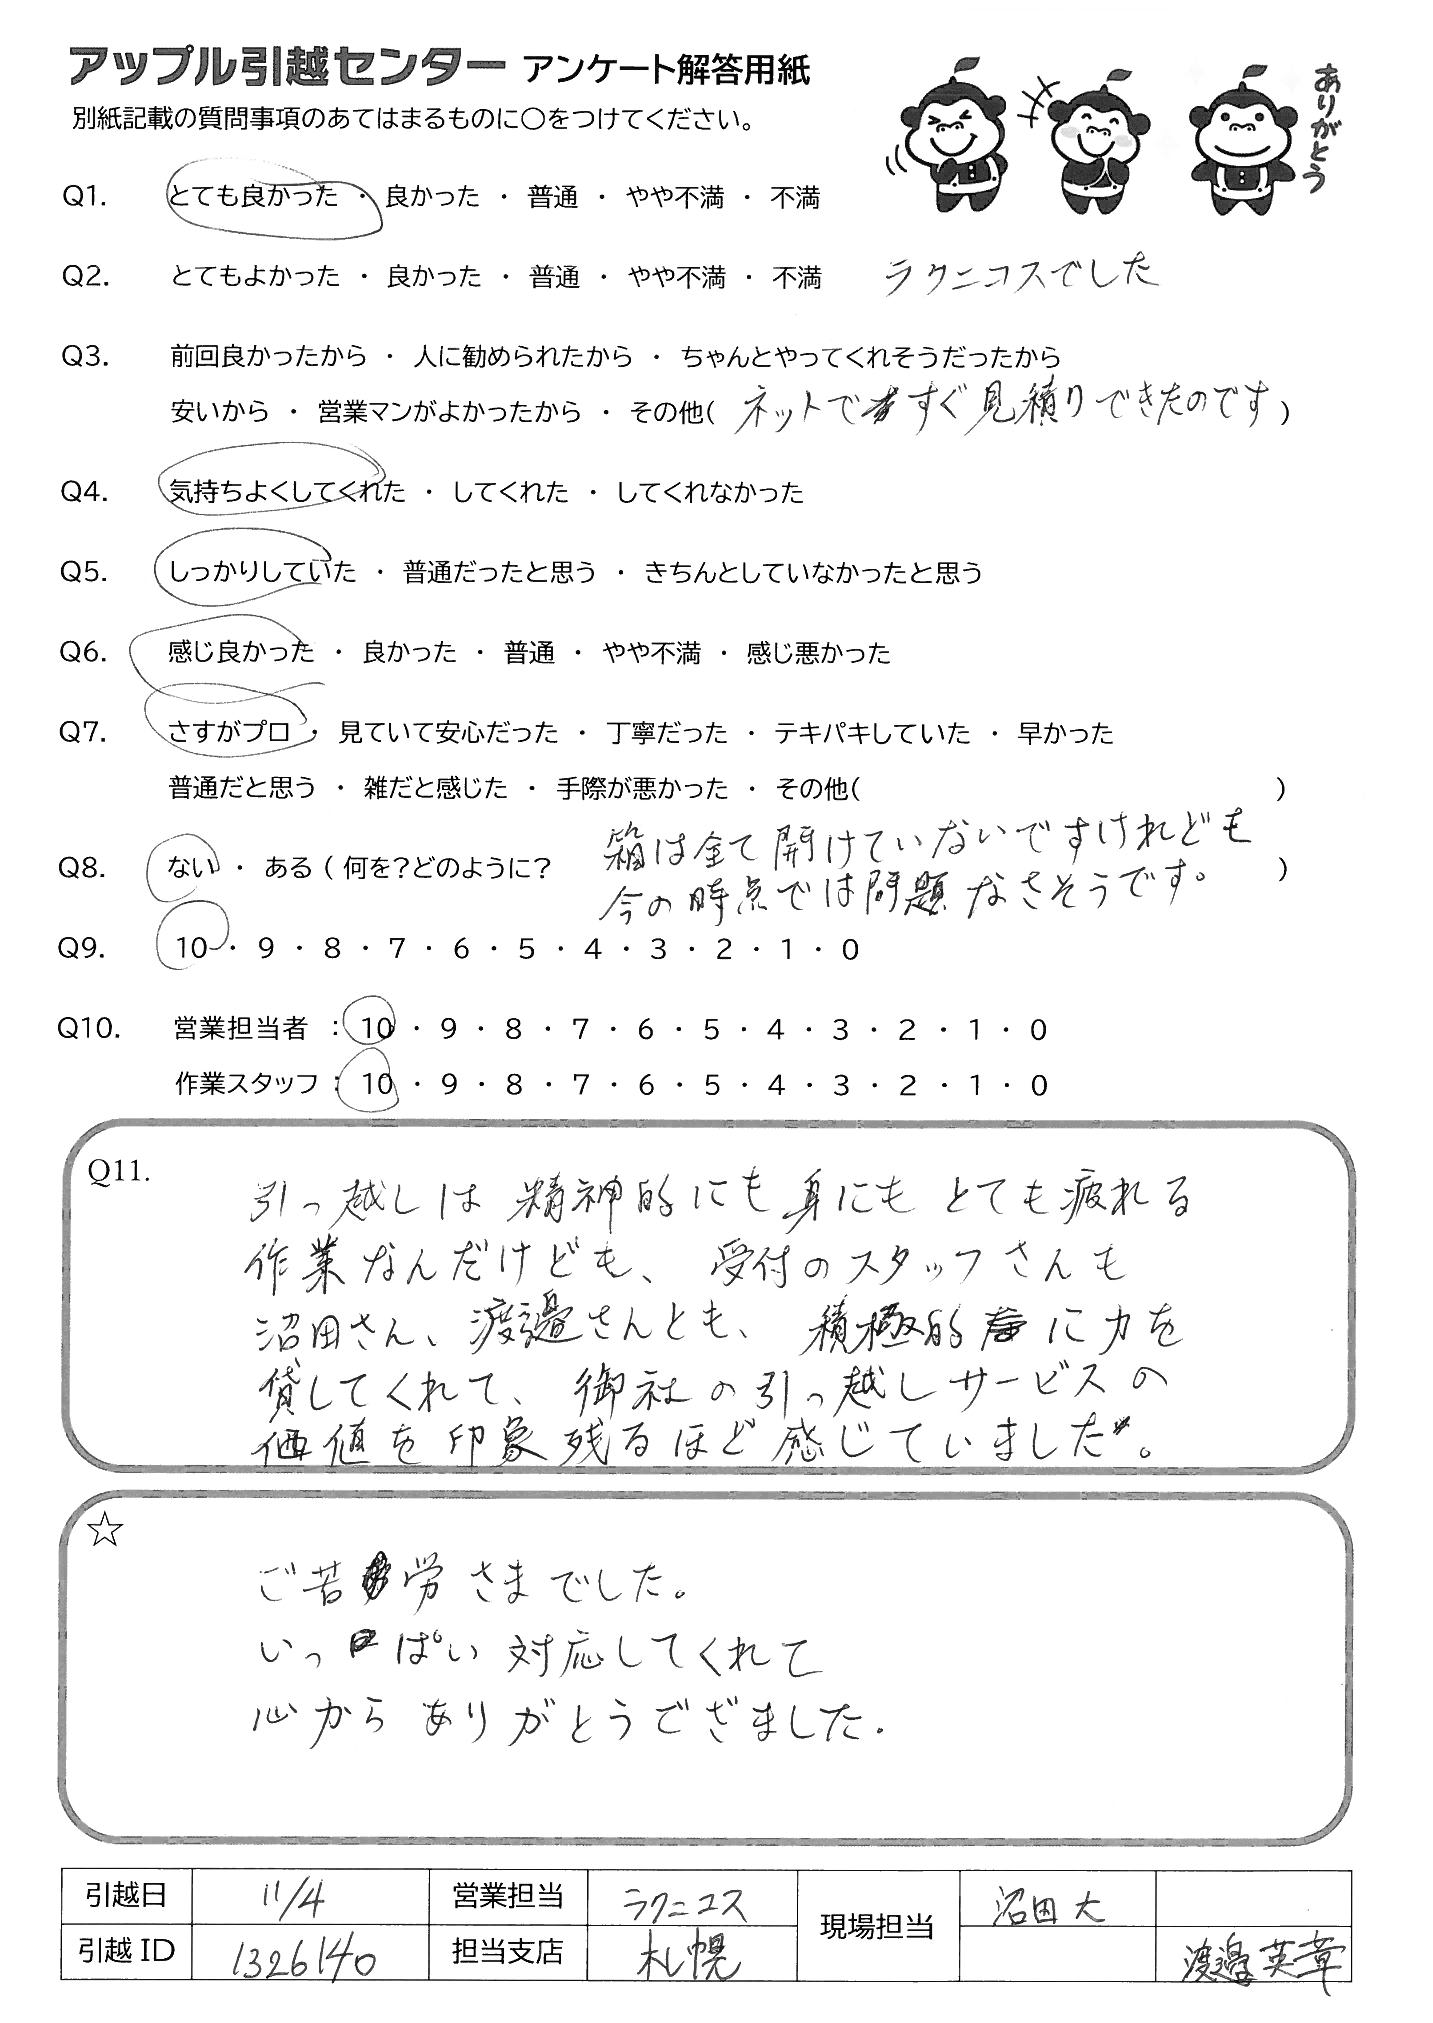 アップル引越センター アンケート解答用紙
別紙記載の質問事項のあてはまるものに〇をつけてください。
ありがとう
Q1. とても良かった ・ 良かった ・ 普通 ・ やや不満 ・ 不満
Q2. とてもよかった ・ 良かった ・ 普通 ・ やや不満 ・ 不満 ラクニコスでした
Q3. 前回良かったから ・ 人に勧められたから ・ ちゃんとやってくれそうだったから
安いから ・ 営業マンがよかったから ・ その他( ネットですぐ見積りできたのです )
Q4. 気持ちよくしてくれた ・ してくれた ・ してくれなかった
Q5. しっかりしていた ・ 普通だったと思う ・ きちんとしていなかったと思う
Q6. 感じ良かった ・ 良かった ・ 普通 ・ やや不満 ・ 感じ悪かった
Q7. さすがプロ ・ 見ていて安心だった ・ 丁寧だった ・ テキパキしていた ・ 早かった
普通だと思う ・ 雑だと感じた ・ 手際が悪かった ・ その他( )
Q8. ない ・ ある ( 何を?どのように? 箱は全て開けていないですけれども
今の時点では問題なさそうです。 )
Q9. 10 ・ 9 ・ 8 ・ 7 ・ 6 ・ 5 ・ 4 ・ 3 ・ 2 ・ 1 ・ 0
Q10. 営業担当者 : 10 ・ 9 ・ 8 ・ 7 ・ 6 ・ 5 ・ 4 ・ 3 ・ 2 ・ 1 ・ 0
作業スタッフ : 10 ・ 9 ・ 8 ・ 7 ・ 6 ・ 5 ・ 4 ・ 3 ・ 2 ・ 1 ・ 0
Q11.
引っ越しは精神的にも身にもとても疲れる
作業なんだけども、受付のスタッフさんも
沼田さん、渡邉さんとも、積極的に力を
貸してくれて、御社の引っ越しサービスの
価値を印象残るほど感じていました。
☆
ご苦労さまでした。
いっぱい対応してくれて
心からありがとうでざました.
引越日 11/4 営業担当 ラクニコス 現場担当 沼田大
引越ID 1326140 担当支店 札幌 渡邉英章